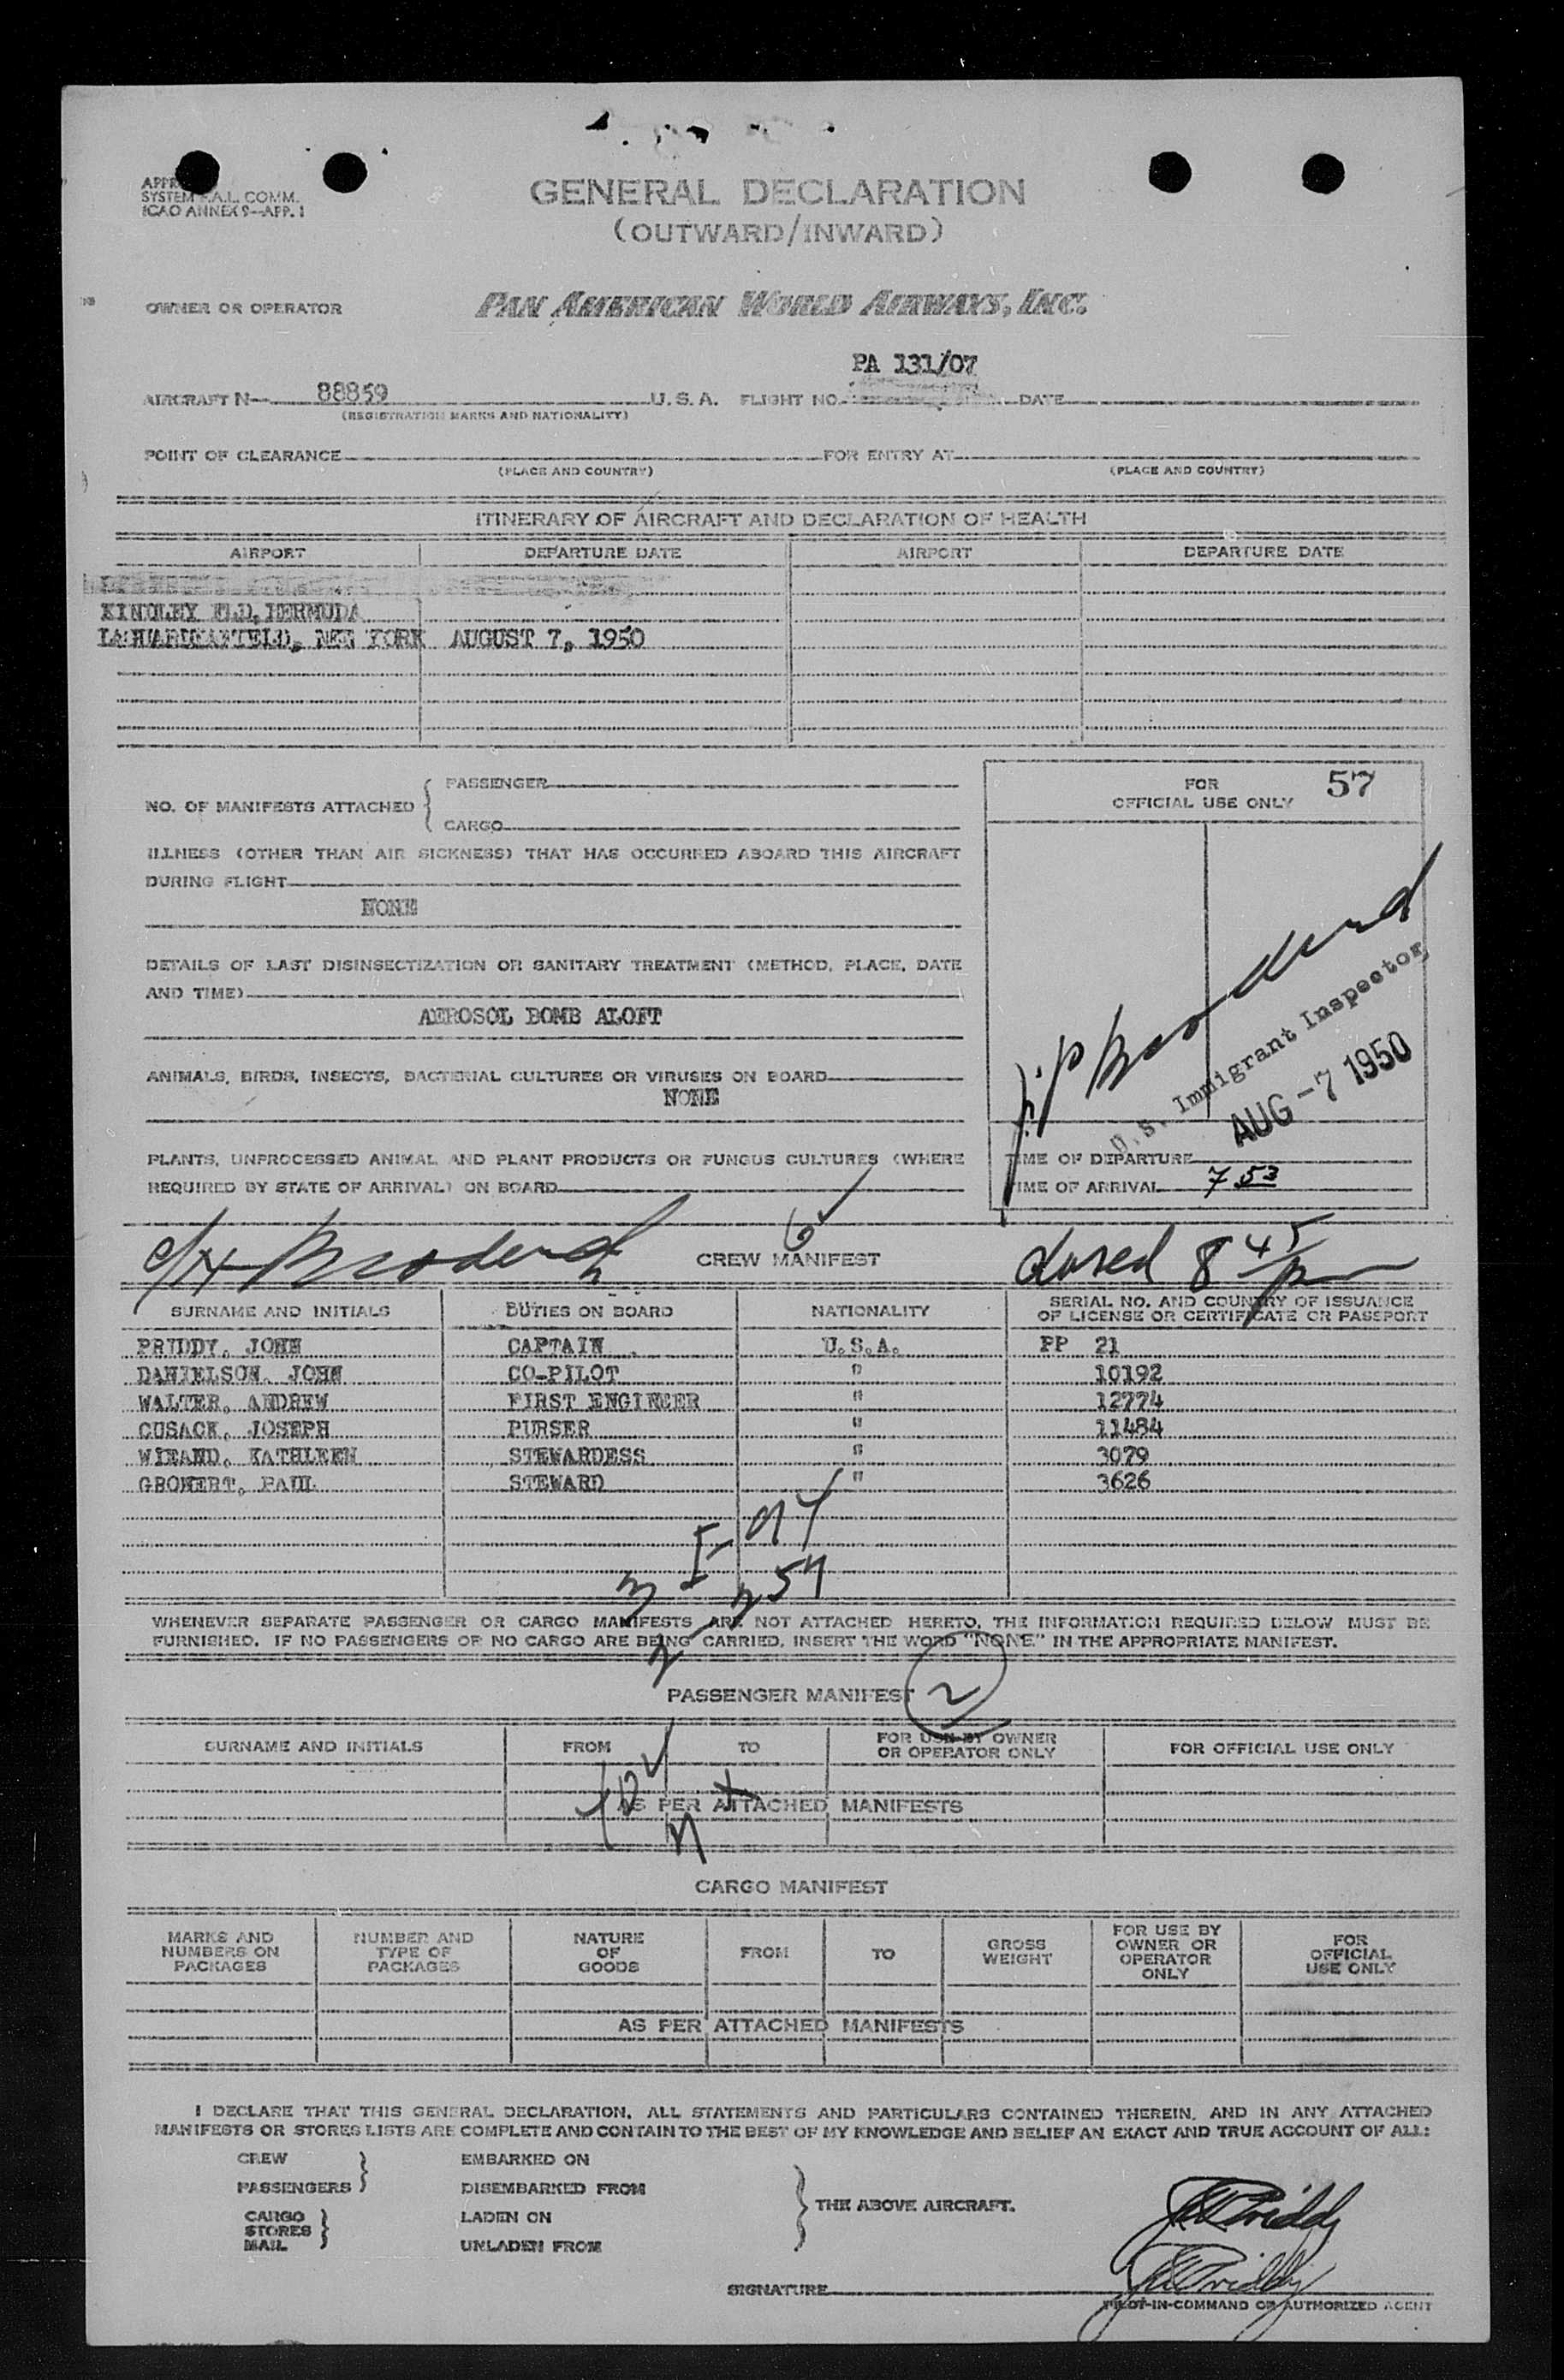 SYSTEM F.A.L. COMM.
ICAO ANNEX 9—APP. 1
GENERAL DECLARATION
(OUTWARD/INWARD)
OWNER OR OPERATOR PAN AMERICAN WORLD AIRWAYS, INC.
PA 131/07
AIRCRAFT N— 88859 U. S. A. FLIGHT NO. DATE
(REGISTRATION MARKS AND NATIONALITY)
POINT OF CLEARANCE FOR ENTRY AT
(PLACE AND COUNTRY) (PLACE AND COUNTRY)
ITINERARY OF AIRCRAFT AND DECLARATION OF HEALTH
AIRPORT DEPARTURE DATE AIRPORT DEPARTURE DATE
KINDLEY FLD, BERMUDA
NEW YORK AUGUST 7, 1950
FOR 57
OFFICIAL USE ONLY
NO. OF MANIFESTS ATTACHED { PASSENGER
CARGO
ILLNESS (OTHER THAN AIR SICKNESS) THAT HAS OCCURRED ABOARD THIS AIRCRAFT
DURING FLIGHT
NONE
DETAILS OF LAST DISINSECTIZATION OR SANITARY TREATMENT (METHOD, PLACE, DATE
AND TIME)
AEROSOL BOMB ALOFT
ANIMALS, BIRDS, INSECTS, BACTERIAL CULTURES OR VIRUSES ON BOARD
NONE
PLANTS, UNPROCESSED ANIMAL AND PLANT PRODUCTS OR FUNGUS CULTURES (WHERE
REQUIRED BY STATE OF ARRIVAL) ON BOARD
U.S. Immigrant Inspector
AUG -7 1950
TIME OF DEPARTURE
TIME OF ARRIVAL 7 53
6
CREW MANIFEST
closed 8 45
SURNAME AND INITIALS DUTIES ON BOARD NATIONALITY SERIAL NO. AND COUNTRY OF ISSUANCE
OF LICENSE OR CERTIFICATE OR PASSPORT
PRIDDY, JOHN CAPTAIN U.S.A. PP 21
DANIELSON, JOHN CO-PILOT " 10192
WALTER, ANDREW FIRST ENGINEER " 12774
CUSACK, JOSEPH PURSER " 11484
WIEAND, KATHLEEN STEWARDESS " 3079
GRONERT, PAUL STEWARD " 3626
WHENEVER SEPARATE PASSENGER OR CARGO MANIFESTS ARE NOT ATTACHED HERETO, THE INFORMATION REQUIRED BELOW MUST BE
FURNISHED. IF NO PASSENGERS OR NO CARGO ARE BEING CARRIED, INSERT THE WORD "NONE" IN THE APPROPRIATE MANIFEST.
PASSENGER MANIFEST 2
SURNAME AND INITIALS FROM TO FOR USE BY OWNER
OR OPERATOR ONLY FOR OFFICIAL USE ONLY
AS PER ATTACHED MANIFESTS
CARGO MANIFEST
MARKS AND
NUMBERS ON
PACKAGES NUMBER AND
TYPE OF
PACKAGES NATURE
OF
GOODS FROM TO GROSS
WEIGHT FOR USE BY
OWNER OR
OPERATOR
ONLY FOR
OFFICIAL
USE ONLY
AS PER ATTACHED MANIFESTS
I DECLARE THAT THIS GENERAL DECLARATION, ALL STATEMENTS AND PARTICULARS CONTAINED THEREIN, AND IN ANY ATTACHED
MANIFESTS OR STORES LISTS ARE COMPLETE AND CONTAIN TO THE BEST OF MY KNOWLEDGE AND BELIEF AN EXACT AND TRUE ACCOUNT OF ALL:
CREW EMBARKED ON
PASSENGERS DISEMBARKED FROM
THE ABOVE AIRCRAFT.
CARGO LADEN ON
STORES
MAIL UNLADEN FROM
SIGNATURE
PILOT-IN-COMMAND OR AUTHORIZED AGENT